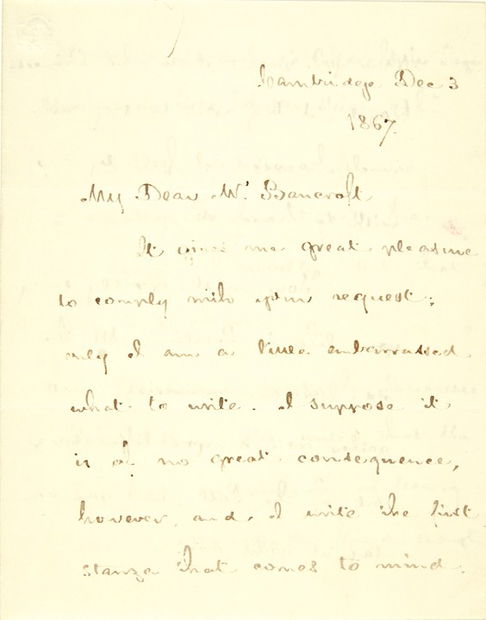 Cambridge Dec 3
1867.
My Dear Mr. Bancroft
It gives me great pleasure
to comply with your request;
only I am a little embarrassed
what to write. I suppose it
is of no great consequence,
however, and I write the first
stanza that comes to mind.